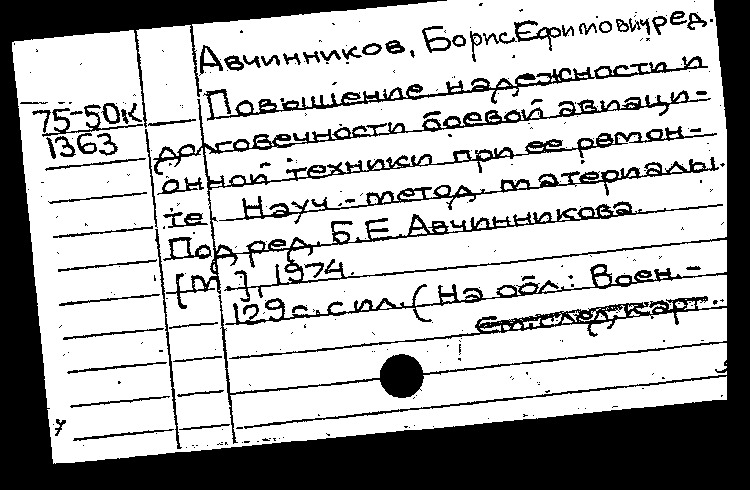 Авчинников, Борис Ефимович ред.
75-50к
1363
Повышение надежности и
долговечности боевой авиаци-
онной техники при ее ремон-
те. Науч.-метод. материалы.
Под ред. Б.Е. Авчинникова.
[М.], 1974.
129с. с ил. (На обл.: Воен.-
См. след. карт.
7